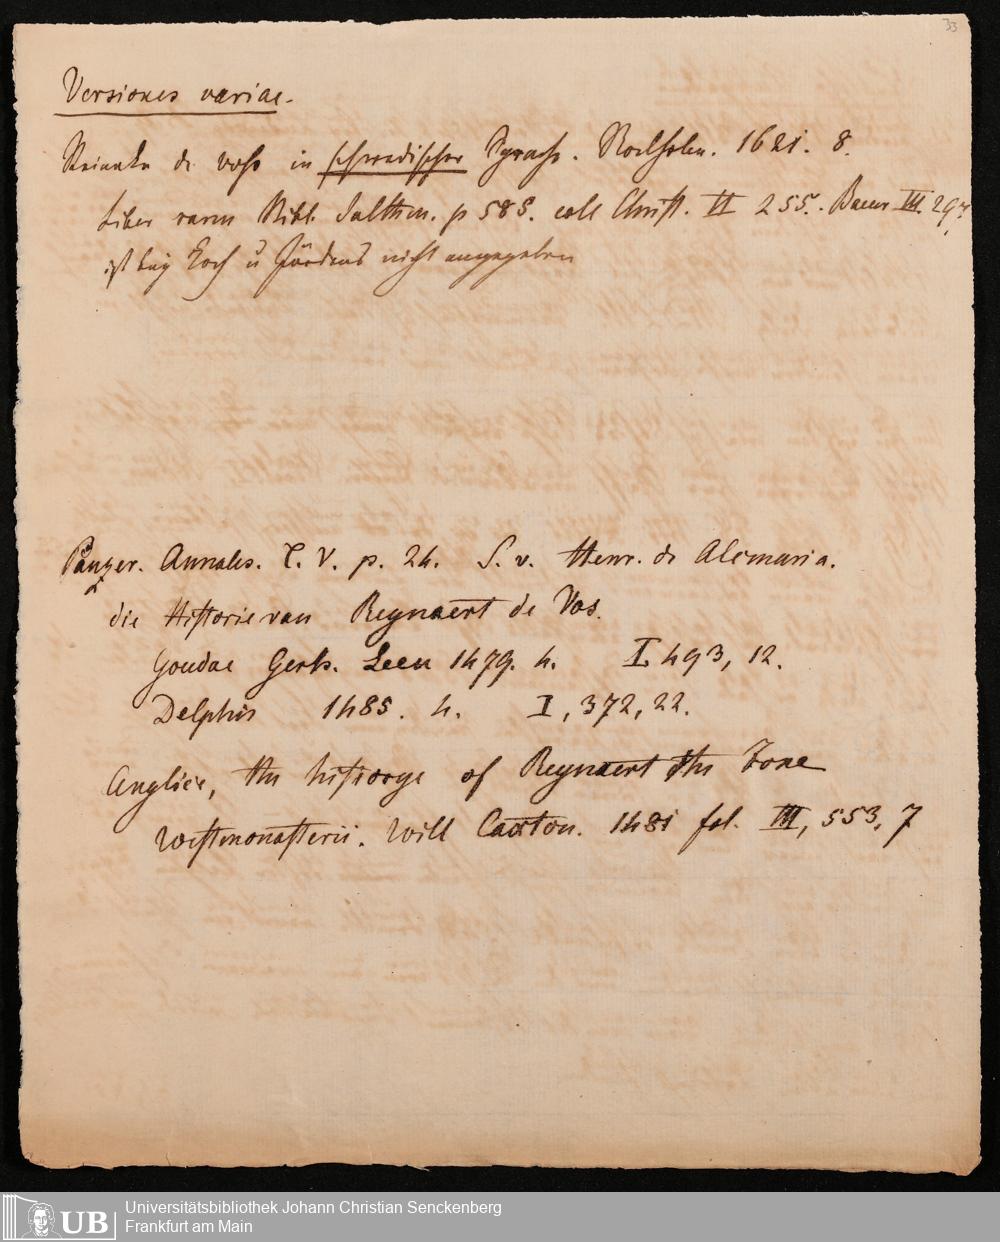 33
Versiones variae.
Reineke de voss in schwedischer Sprach. Stockholm. 1621. 8.
Liber rarus Bibl. Salthen. p 585. coll Christ. II 255. Bauer III. 297
ist bey Koch u Jördens nicht angegeben
Panzer. Annales. T. V. p. 24. S. v. Henr. de Alcmaria.
die Historie van Reynaert de Vos.
Goudae Gerh. Leeu 1479. 4. I 493, 12.
Delphis 1485. 4. I, 372, 22.
Anglice, the historye of Reynaert the Foxe
Westmonasterii. Will Caxton. 1481 fol. III, 553, 7
UB
Universitätsbibliothek Johann Christian Senckenberg
Frankfurt am Main